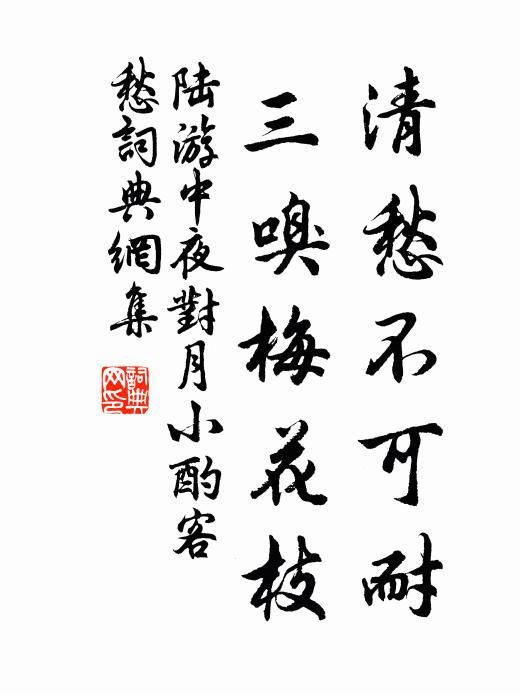 清愁不可耐
三嗅梅花枝
陆游中夜對月小酌客
愁詞典網集
詞典网印